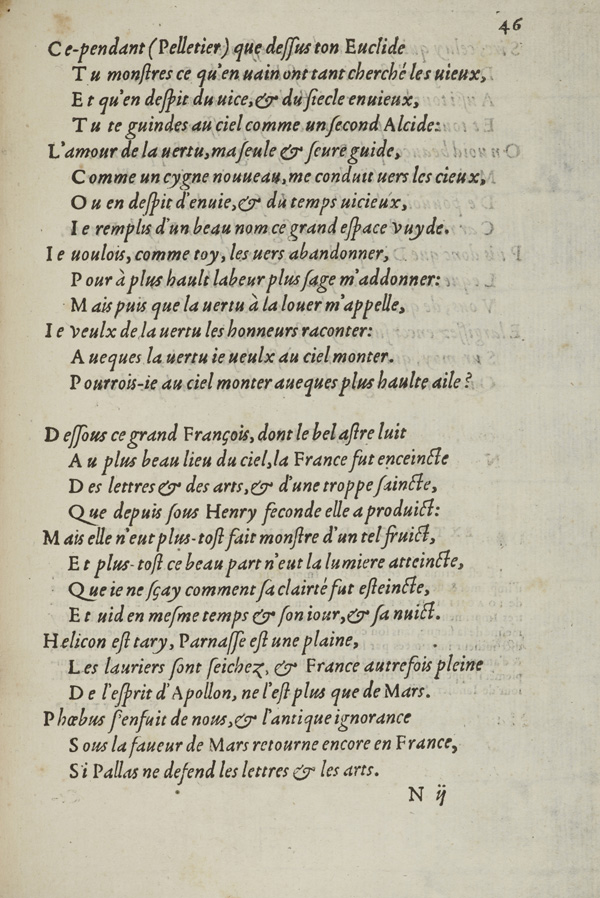 46
Ce-pendant (Pelletier) que deſſus ton Euclide
Tu monſtres ce qu'en uain ont tant cherché les uieux,
Et qu'en deſpit du uice, & du ſiecle enuieux,
Tu te guindes au ciel comme un ſecond Alcide:
L'amour de la uertu, ma ſeule & ſeure guide,
Comme un cygne nouueau, me conduit uers les cieux,
Ou en deſpit d'enuie, & du temps uicieux,
Ie remplis d'un beau nom ce grand eſpace vuyde.
Ie uoulois, comme toy, les uers abandonner,
Pour à plus hault labeur plus ſage m'addonner:
Mais puis que la uertu à la louer m'appelle,
Ie veulx de la uertu les honneurs raconter:
Aueques la uertu ie ueulx au ciel monter.
Pourrois-ie au ciel monter aueques plus haulte aile?
Deſſous ce grand François, dont le bel aſtre luit
Au plus beau lieu du ciel, la France fut enceincte
Des lettres & des arts, & d'une troppe ſaincte,
Que depuis ſous Henry feconde elle a produict:
Mais elle n'eut plus-toſt fait monſtre d'un tel fruict,
Et plus-toſt ce beau part n'eut la lumiere atteincte,
Que ie ne ſçay comment ſa clairté fut eſteincte,
Et uid en meſme temps & ſon iour, & ſa nuict.
Helicon eſt tary, Parnaſſe eſt une plaine,
Les lauriers ſont ſeichez, & France autrefois pleine
De l'eſprit d'Apollon, ne l'eſt plus que de Mars.
Phœbus ſ'enfuit de nous, & l'antique ignorance
Sous la faueur de Mars retourne encore en France,
Si Pallas ne defend les lettres & les arts.
N ij